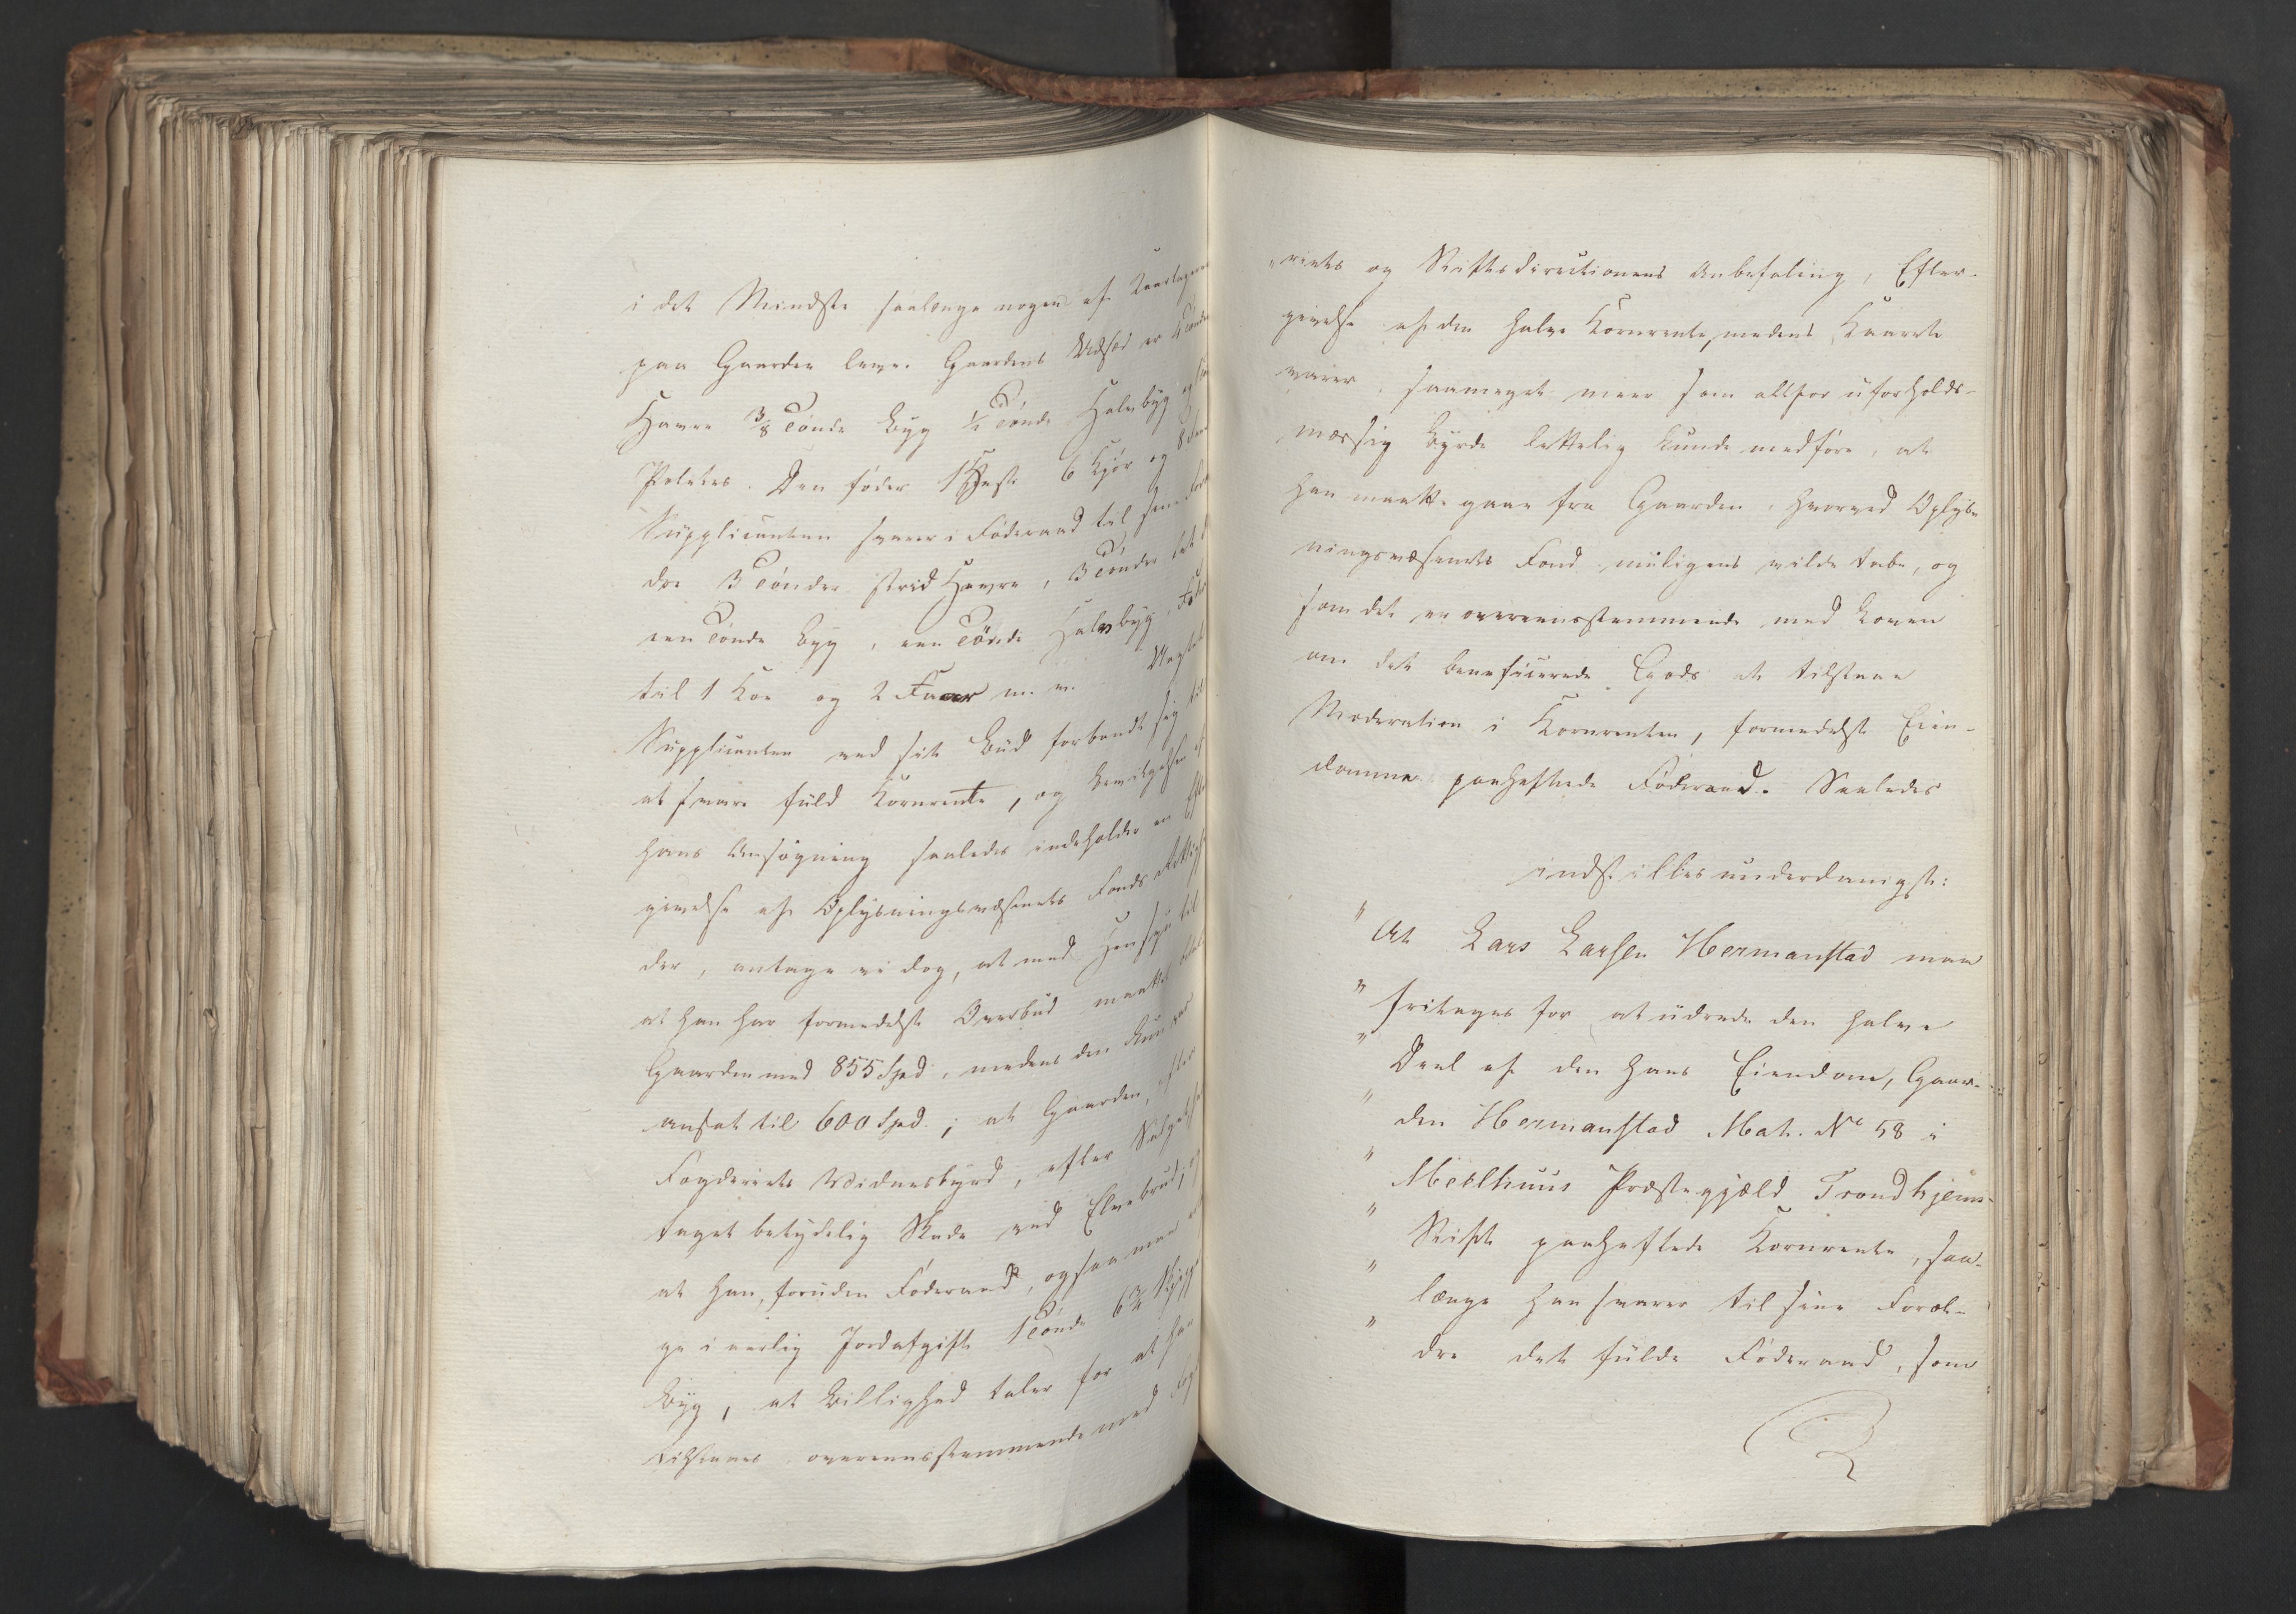 i det Mindste saalænge nogen af Kaartagerne
paa Gaarden lever. Gaardens Udsæd er 4 Tønder
Havre 3/8 Tønde Byg 1/2 Tønde Halvbyg og
Poteter. Den føder 1 Hest 6 Kjør og 8
Supplicanten svarer i Føderaad til sine Foræl
dre 3 Tønder strid Havre, 3 Tønder
een Tønde Byg, een Tønde Halvbyg, Foder
til 1 Koe og 2 Faar m. m. Uagtet
Supplicanten ved sit Bud forbandt sig til
at svare fuld Kornrente, og Bevilgelsen af
hans Ansøgning saaledes indeholder en Efter
givelse af Oplysningsvæsenets Fonds Rettighe
der, antage vi dog, at med Hensyn til
at han har formedelst Overbud maattet betale
Gaarden med 855 Spd, medens den kun var
ansat til 600 Spd.; at Gaarden, efter
Fogderiets Vidnesbyrd, efter Salget har
taget betydelig Skade ved Elvebrud, og
at han, foruden Føderaad, ogsaa maa
ge i aarlig Jordafgift 1 Tønde 6 3/4 Skjepper
Byg, at Billighed taler for at han
tilstaaes overeensstemmende med Fog
"riets og Stiftsdirectionens Anbefaling, Efter-
givelse af den halve Kornrente, medens Kaaret
varer, saameget meer som altfor uforholds-
mæssig Byrde lettelig kunde medføre, at
han maatte gaae fra Gaarden, hvorved Oplys
ningsvæsenets Fond muligens vilde tabe, og
som det er overeensstemmende med Loven
om det beneficerede Gods at tilstaae
Moderation i Kornrenten, formedelst Eien-
domme paaheftede Føderaad. Saaledes
indstilles underdanigst:
" At Lars Larsen Hermanstad maa
" fritages for at udrede den halve
" Deel af den hans Eiendom, Gaar-
" den Hermanstad Mat. No 58 i
" Meelhuus Præstegjæld Trondhjems
" Stift paaheftede Kornrente, saa-
" længe han svarer til sine Foræl-
" dre det fulde Føderaad, som